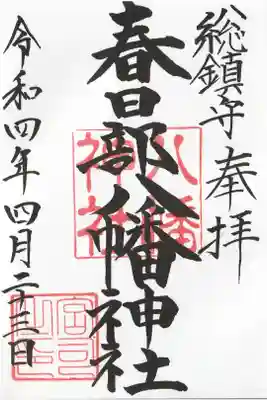 総鎮守奉拝
春日部八幡神社
八幡神社
令和四年四月二十三日
宮司之印